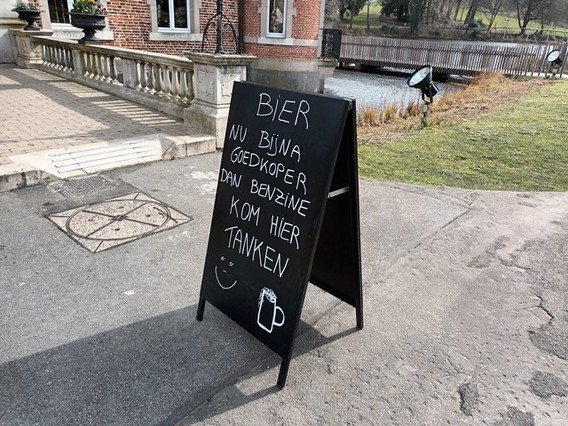 BIER
NU BIJNA
GOEDKOPER
DAN BENZINE
KOM HIER
TANKEN